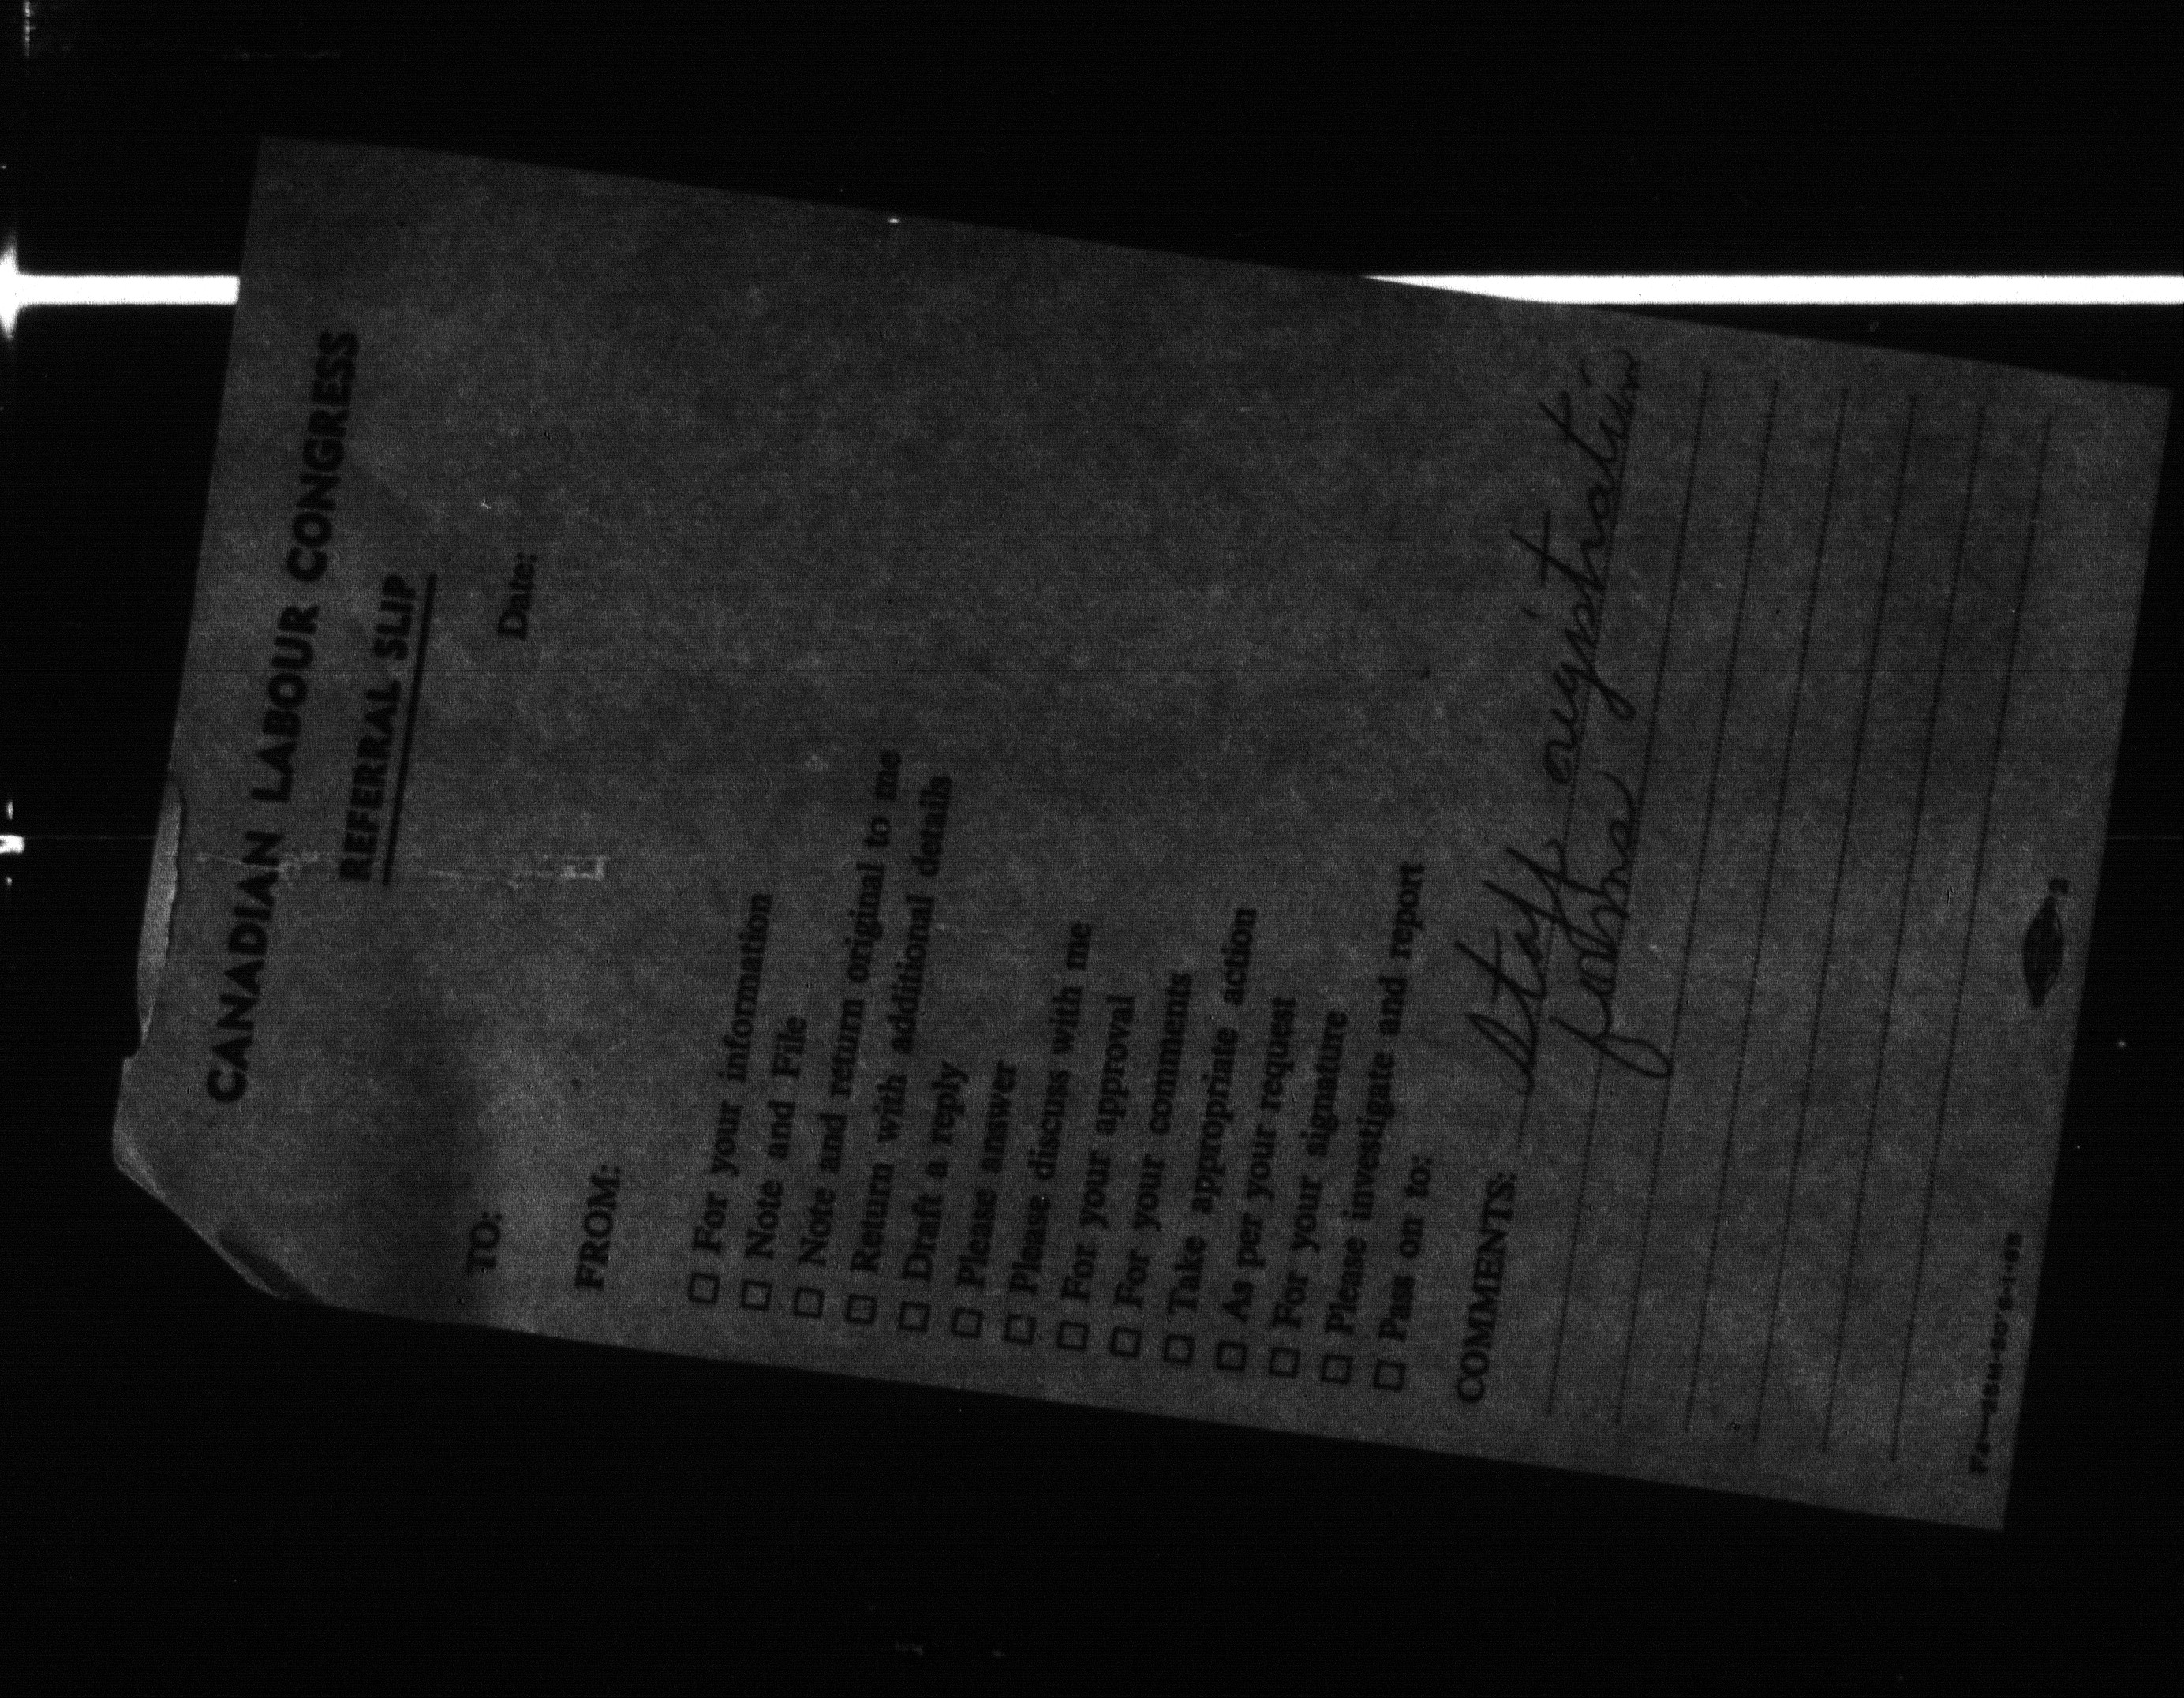 CANADIAN LABOUR CONGRESS
REFERRAL SLIP
Date:
TO:
FROM:
☐ For your information
☐ Note and File
☐ Note and return original to me
☐ Return with additional details
☐ Draft a reply
☐ Please answer
☐ Please discuss with me
☐ For your approval
☐ For your comments
☐ Take appropriate action
☐ As per your request
☐ For your signature
☐ Please investigate and report
☐ Pass on to:
COMMENTS: Staff registration
forms
2